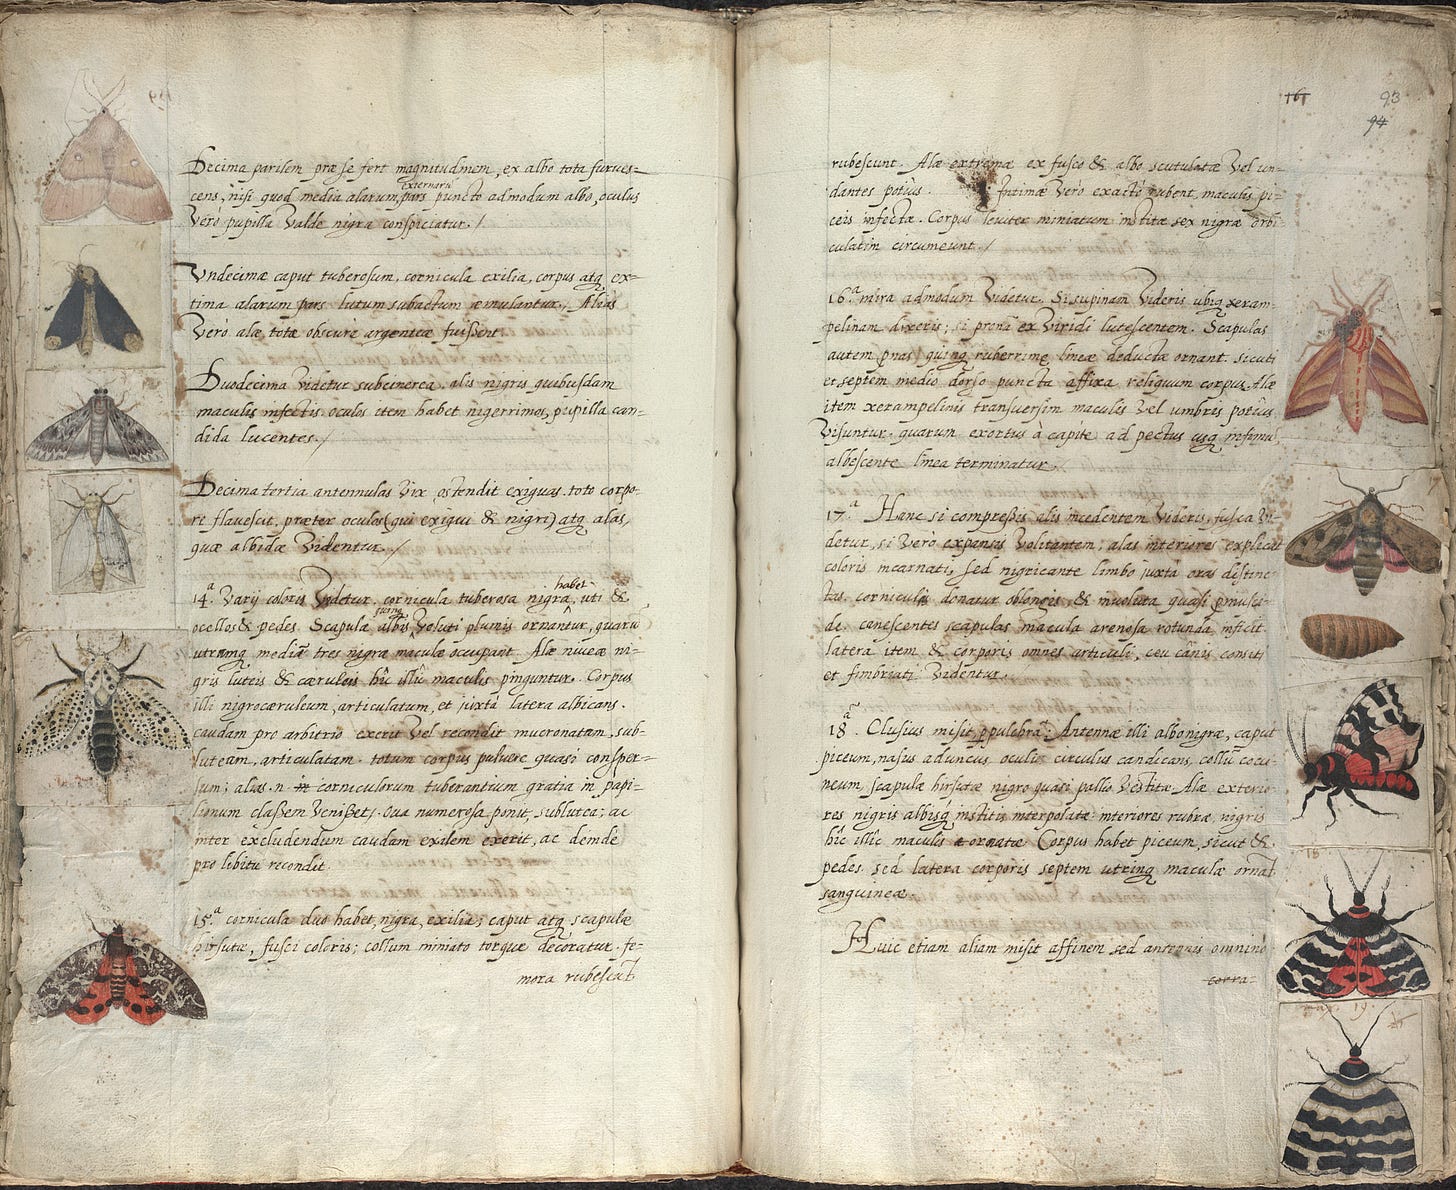 Decima parilem præ se fert magnitudinem, ex albo tota furves=
cens, nisi quod media alarum externarū pars puncto admodum albo, oculus
vero pupilla valde nigra conspiciatur. /
Undecimæ caput tuberosum, cornicula exilia, corpus atq ex=
tima alarum pars lutum subactum æmulantur, Aliàs
vero alæ totæ obscure argenteæ fuissent
Duodecima videtur subcinerea, alis nigris quibusdam
maculis infectis. oculos item habet nigerrimos, pupilla can=
dida lucentes. /
Decima tertia antennulas vix ostendit exiguas. toto corpo=
re flavescit, præter oculos (qui exigui & nigri) atq alas,
quæ albidæ videntur. /
14.a Varij coloris videtur. cornicula tuberosa nigra habet, uti &
ocellos & pedes. Scapulæ albis quinq veluti plumis ornantur, quarū
utramq mediā tres nigræ maculæ occupant. Alæ niveæ ni=
gris luteis & cæruleis hîc illîc maculis pinguntur. Corpus
illi nigrocæruleum, articulatum, et juxtà latera albicans.
caudam pro arbitrio exerit vel recondit mucronatam, sub=
luteam, articulatam. totum corpus pulvere quasi consper=
sum; alias .n. in corniculorum tuberantium gratia in papi=
lionum classem venisset. Ova numerosa ponit, sublutea; ac
inter excludendum caudam exilem exerit, ac deinde
pro libitu recondit.
15.a cornicula duo habet, nigra, exilia; caput atq scapulæ
hirsutæ, fusci coloris; collum miniato torque decoratur. fe=
mora rubescūt
161
93
94
rubescunt. Alæ extremæ ex fusco & albo scutulatæ vel un=
dantes potiùs. Intimæ vero exactè rubent, maculis pi=
ceis infectæ. Corpus leviter miniatum institæ sex nigræ orbi=
culatim circumeunt. /
16.a mira admodum videtur. Si supinam videris ubiq xeram=
pelinam dixeris; si pronā ex viridi lutescentem. Scapulas
autem pnas quinq ruberrimę lineæ deductæ ornant. sicuti
et septem medio dorso puncta affixa reliquum corpus. Alæ
item xerampelinis transversim maculis vel umbris potiùs
visuntur. quarum exortus à capite ad pectus usq infimū
albescente linea terminatur.
17.a Hanc si compressis alis incedentem videris, fusca vi=
detur, si vero expansis volitantem; alas interiores explicat
coloris incarnati, sed nigricante limbo juxta oras distinc=
tas. corniculis donatur oblongis, & involuta quasi pmusci=
de. canescentes scapulas macula arenosa rotunda inficit.
latera item & corporis omnes articuli, ceu canis consiti
et fimbriati videntur.
18.a Clusius misit, ppulchra; Antennæ illi albonigra, caput
piceum, nasus aduncus, oculis circulus candicans, collū cocci=
neum, scapulæ hirsutæ nigro quasi pallio vestitæ. Alæ exterio=
res nigris albisq institis interpolatæ interiores rubræ, nigris
hîc illîc maculis ornatæ. Corpus habet piceum, sicut &
pedes. sed latera corporis septem utrinq maculæ ornāt
sanguineæ.
Huic etiam aliam misit affinem sed antennis omnino
corra=
18
19.